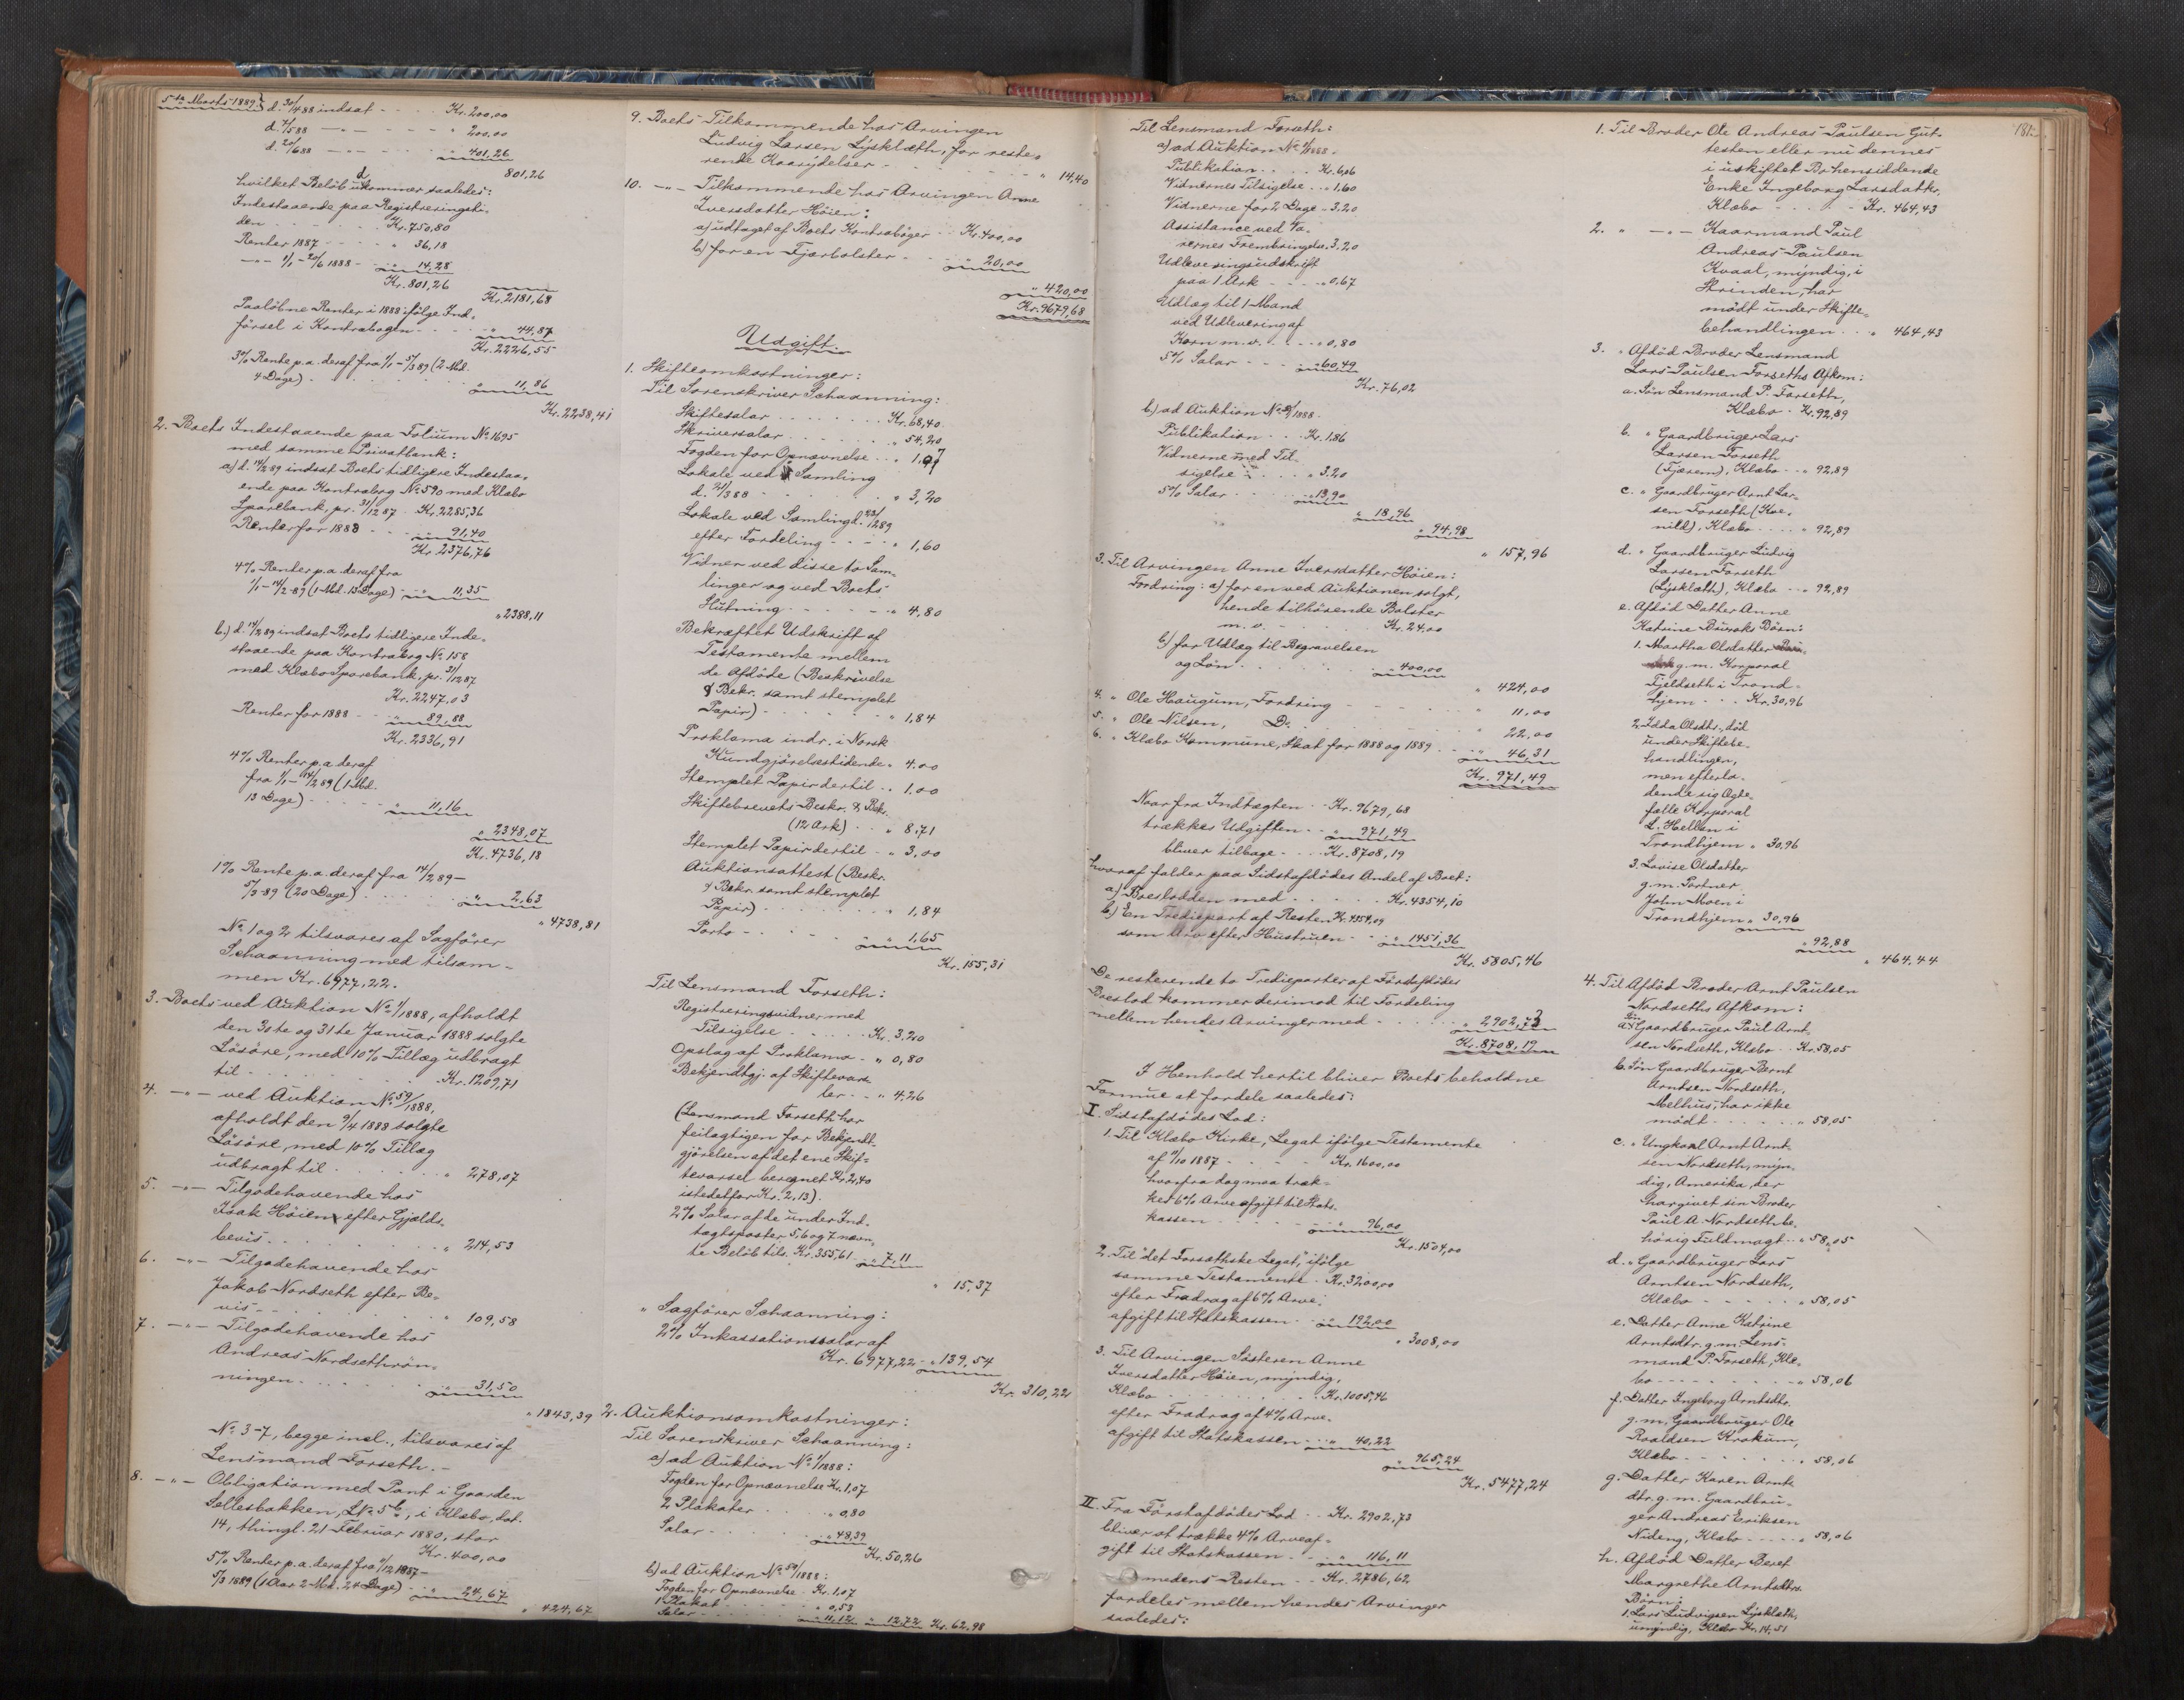 5te Marts 1889
d. 30/4 88 indsat - - - Kr. 200,00
d. 7/5 88 —"— - - - " 200,00
d. 20/6 88 —"— - - - " 401,26
801,26
hvilket Beløb udkommer saaledes:
Indestaaende paa Registreringsti-
den - - - - Kr. 750,80
Renter 1887 - - - - " 36,18
—"— 1/1 - 20/6 1888 - " 14,28
Kr. 801,26
Kr. 2181,68
Paaløbne Renter i 1888 ifølge Ind-
førsel i Kontrabogen - - - " 44,87
Kr. 2226,55
3% Rente p.a. deraf fra 1/1 - 5/3 89 (2 Md.
4 Dage) - - - " 11,86
Kr. 2238,41
2. Boets Indestaaende paa Folium No. 1695
med samme Privatbank:
a) d. 14/2 89 indsat Boets tidligere Indestaa-
ende paa Kontrabog No. 590 med Klæbo
Sparebank, pr. 31/12 87 - Kr. 2285,36
Renter for 1888 - - - 91,40
Kr. 2376,76
4% Renter p.a. deraf fra
1/1 - 14/2 89 (1 Md. 13 Dage) - " 11,35
" 2388,11
b.) d. 14/2 89 indsat Boets tidligere Inde-
staaende paa Kontrabog No. 158
med Klæbo Sparebank, pr. 31/12 87
Kr. 2247,03
Renter for 1888 - " 89,88
Kr. 2336,91
4% Renter p.a. deraf
fra 1/1 - 14/2 89 (1 Md.
13 Dage) - - - " 11,16
" 2348,07
Kr. 4736,18
1% Rente p.a. deraf fra 14/2 89 -
5/3 89 (20 Dage) - - - " 2,63
" 4738,81
No. 1 og 2 tilsvares af Sagfører
Schaanning med tilsam-
men Kr. 6977,22.
3. Boets ved Auktion No. 1/1888, afholdt
den 30te og 31te Januar 1888 solgte
Løsøre, med 10% Tillæg udbragt
til - - - Kr. 1209,71
4. —"— ved Auktion No. 59/1888,
afholdt den 9/4 1888 solgte
Løsøre, med 10% Tillæg
udbragt til - - - " 278,07
5. —"— Tilgodehavende hos
Isak Høien efter Gjælds-
bevis - - - " 214,53
6. —"— Tilgodehavende hos
Jakob Nordseth efter Be-
vis - - - " 109,58
7. —"— Tilgodehavende hos
Andreas Nordsethrøn-
ningen - - - " 31,50
" 1843,39
No. 3-7, begge incl., tilsvares af
Lensmand Forseth. -
8. —"— Obligation med Pant i Gaarden
Sellesbakken, L No. 5b, i Klæbo, dat.
14, thingl. 21 Februar 1880, stor
Kr. 400,00
5% Renter p.a. deraf fra 11/12 1887 -
5/3 1889 (1 Aar 2 Md. 24 Dage) - " 24,67
" 424,67
9. Boets Tilkommende hos Arvingen
Ludvig Larsen Lysklæth, for reste-
rende Kaarydelser - - - " 14,40
10. —"— Tilkommende hos Arvingen Anne
Iversdatter Høien:
a) udtaget af Boets Kontrabøger - - Kr. 400,00
b) for en Fjærbolster - - - " 20,00
" 420,00
Kr. 9679,68
Udgift.
1. Skifteomkostninger:
Til Sorenskriver Schaanning:
Skiftesalar - - - Kr. 68,40
Skriversalar - - - " 54,20
Fogden for Opnævnelse - - " 1,07
Lokale ved Samling
d. 21/3 88 - - - " 3,20
Lokale ved Samling d. 23/1 289
efter Fordeling - - - " 1,60
Vidner ved disse to Sam-
linger og ved Boets
Slutning - - - " 4,80
Bekræftet Udskrift af
Testamente mellem
de Afdøde (Beskrivelse
& Bekr. samt stemplet
Papir) - - - " 1,84
Proklama indr. i Norsk
Kundgjørelsestidende " 4,00
Stemplet Papir dertil - - " 1,00
Skiftebrevets Beskr. & Bekr.
(12 Ark) - - " 8,71
Stemplet Papir dertil - " 3,00
Auktionsattest (Beskr.
& Bekr. samt stemplet
Papir) - - - " 1,84
Porto - - - " 1,65
Kr. 155,31
Til Lensmand Forseth:
Registreringsvidner med
Tilsigelse - - - Kr. 3,20
Opslag af Proklama - " 0,80
Bekjendtgj. af Skiftevars-
ler - - " 4,26
(Lensmand Forseth har
feilagtigen for Bekjendt-
gjørelsen af det ene Skif-
tevarsel beregnet Kr. 2,40
istedetfor Kr. 2,13).
2% Salar af de under Ind-
tægtsposter 5, 6 og 7 nævn-
te Beløb tils. Kr. 355,61 - " 7,11
" 15,37
" Sagfører Schaanning:
2% Inkassationssalar af
Kr. 6977,22 - " 139,54
Kr. 310,22
2. Auktionsomkostninger:
Til Sorenskriver Schaanning:
a) ad Auktion No. 1/1888:
Fogden for Opnævnelse Kr. 1,07
2 Plakater - - " 0,80
Salar - - - " 48,39
Kr. 50,26
b) ad Auktion No. 59/1888:
Fogden for Opnævnelse - Kr. 1,07
1 Plakat - - - " 0,53
Salar - - - " 11,12 " 12,72 Kr. 62,98
181.
Til Lensmand Forseth:
a) ad Auktion No. 1/1888.
Publikation - - - Kr. 6,06
Vidnernes Tilsigelse - - " 1,60
Vidnerne for 2 Dage - 3,20
Assistance ved Va-
rernes Frembringelse " 3,20
Udleveringsudskrift
paa 1 Ark - - - " 0,67
Udlæg til 1 Mand
ved Udlevering af
Korn m.v. - - - " 0,80
5% Salar - - - " 60,49
Kr. 76,02
b.) ad Auktion No. 59/1888.
Publikation - - - Kr. 1,86
Vidnerne med Til-
sigelse - - - " 3,20
5% Salar - - - " 13,90
" 18,96
" 94,98
" 157,96
3. Til Arvingen Anne Iversdatter Høien:
Fordring: a) for en ved Auktionen solgt,
hende tilhørende Bolster
m.v. - - - Kr. 24,00
b) for Udlæg til Begravelsen
og Løn - - - " 400,00
" 424,00
4. " Ole Haugum, Fordring - - - " 11,00
5. " Ole Nilsen, Do. - - - " 22,00
6. " Klæbo Kommune, Skat for 1888 og 1889 - - " 46,31
Kr. 971,49
Naar fra Indtægten - - Kr. 9679,68
trækkes Udgiften - - " 971,49
bliver tilbage - - - Kr. 8708,19
hvoraf falder paa Sidstafdødes Andel af Boet:
a) Boeslodden med - - - Kr. 4354,10
b) En Trediepart af Resten Kr. 4354,09
som Arv efter Hustruen - - " 1451,36
Kr. 5805,46
De resterende to Tredieparter af Førstafdødes
Boeslod kommer derimod til Fordeling
mellem hendes Arvinger med - - - " 2902,73
Kr. 8708,19
I Henhold hertil bliver Boets beholdne
Formue at fordele saaledes:
I. Sidstafdødes Lod:
1. Til Klæbo Kirke, Legat ifølge Testamente
af 11/10 1887 - - - Kr. 1600,00
hvorfra dog maa træk-
kes 6% Arveafgift til Stats-
kassen - - - " 96,00
Kr. 1504,00
2. Til "det Forsethske Legat", ifølge
samme Testamente - Kr. 3200,00
efter Fradrag af 6% Arve-
afgift til Statskassen - " 192,00
" 3008,00
3. Til Arvingen Søsteren Anne
Iversdatter Høien, myndig,
Klæbo - - - Kr. 1005,46
efter Fradrag af 4% Arve-
afgift til Statskassen - - " 40,22
" 965,24
Kr. 5477,24
II. Fra Førstafdødes Lod - - Kr. 2902,73
bliver at trække 4% Arveaf-
gift til Statskassen - - " 116,11
medens Resten - - Kr. 2786,62
fordeles mellem hendes Arvinger
saaledes:
1. Til Broder Ole Andreas Paulsen Gut-
testen eller nu dennes
i uskiftet Bo hensiddende
Enke Ingeborg Larsdatter,
Klæbo - - - Kr. 464,43
2. " —"— Kaarmand Paul
Andreas Paulsen
Kvaal, myndig, i
Strinden, har
mødt under Skifte-
behandlingen - - " 464,43
3. " Afdød Broder Lensmand
Lars Paulsen Forseths Afkom:
a. Søn Lensmand P. Forseth,
Klæbo - Kr. 92,89
b. " Gaardbruger Lars
Larsen Forseth
(Fjærem), Klæbo - - " 92,89
c. " Gaardbruger Arnt Lar-
sen Forseth (Kve-
nild), Klæbo - - - " 92,89
d. " Gaardbruger Ludvig
Larsen Forseth
(Lysklæth), Klæbo - - " 92,89
e. Afdød Datter Anne
Katrine Børn:
1. Martha Olsdatter
g. m. Korporal
Fjeldseth i Trond-
hjem - - - Kr. 30,96
2. Idda Olsdtr., død
under Skiftebe-
handlingen,
men efterla-
dende sig Ægte-
fælle Korporal
L. Hellem i
Trondhjem " 30,96
3. Lovise Olsdatter
g. m. Portner
John Moen i
Trondhjem " 30,96
" 92,88
" 464,44
4. Til Afdød Broder Arnt Paulsen
Nordseths Afkom:
a. Søn Gaardbruger Paul Arnt-
sen Nordseth, Klæbo - - Kr. 58,05
b. Søn Gaardbruger Bernt
Arntsen Nordseth,
Melhus, har ikke
mødt - - - " 58,05
c. " Ungkarl Arnt Arnt-
sen Nordseth, myn-
dig, Amerika, der
har givet sin Broder
Paul A. Nordseth be-
hørig Fuldmagt - - " 58,05
d. " Gaardbruger Lars
Arntsen Nordseth,
Klæbo - - - " 58,05
e. Datter Anne Katrine
Arntsdtr. g. m. Lens-
mand P. Forseth, Klæ-
bo - - - " 58,06
f. Datter Ingeborg Arntsdtr.
g. m. Gaardbruger Ole
Roaldsen Krokum,
Klæbo - - - " 58,06
g. Datter Karen Arnts-
dtr. g. m. Gaardbru-
ger Andreas Eriksen
Nideng, Klæbo - - - " 58,06
h. Afdød Datter Beret
Margrethe Arntsdtrs.
Børn:
1. Lars Ludvigsen Lysklæth,
umyndig, Klæbo Kr. 14,51